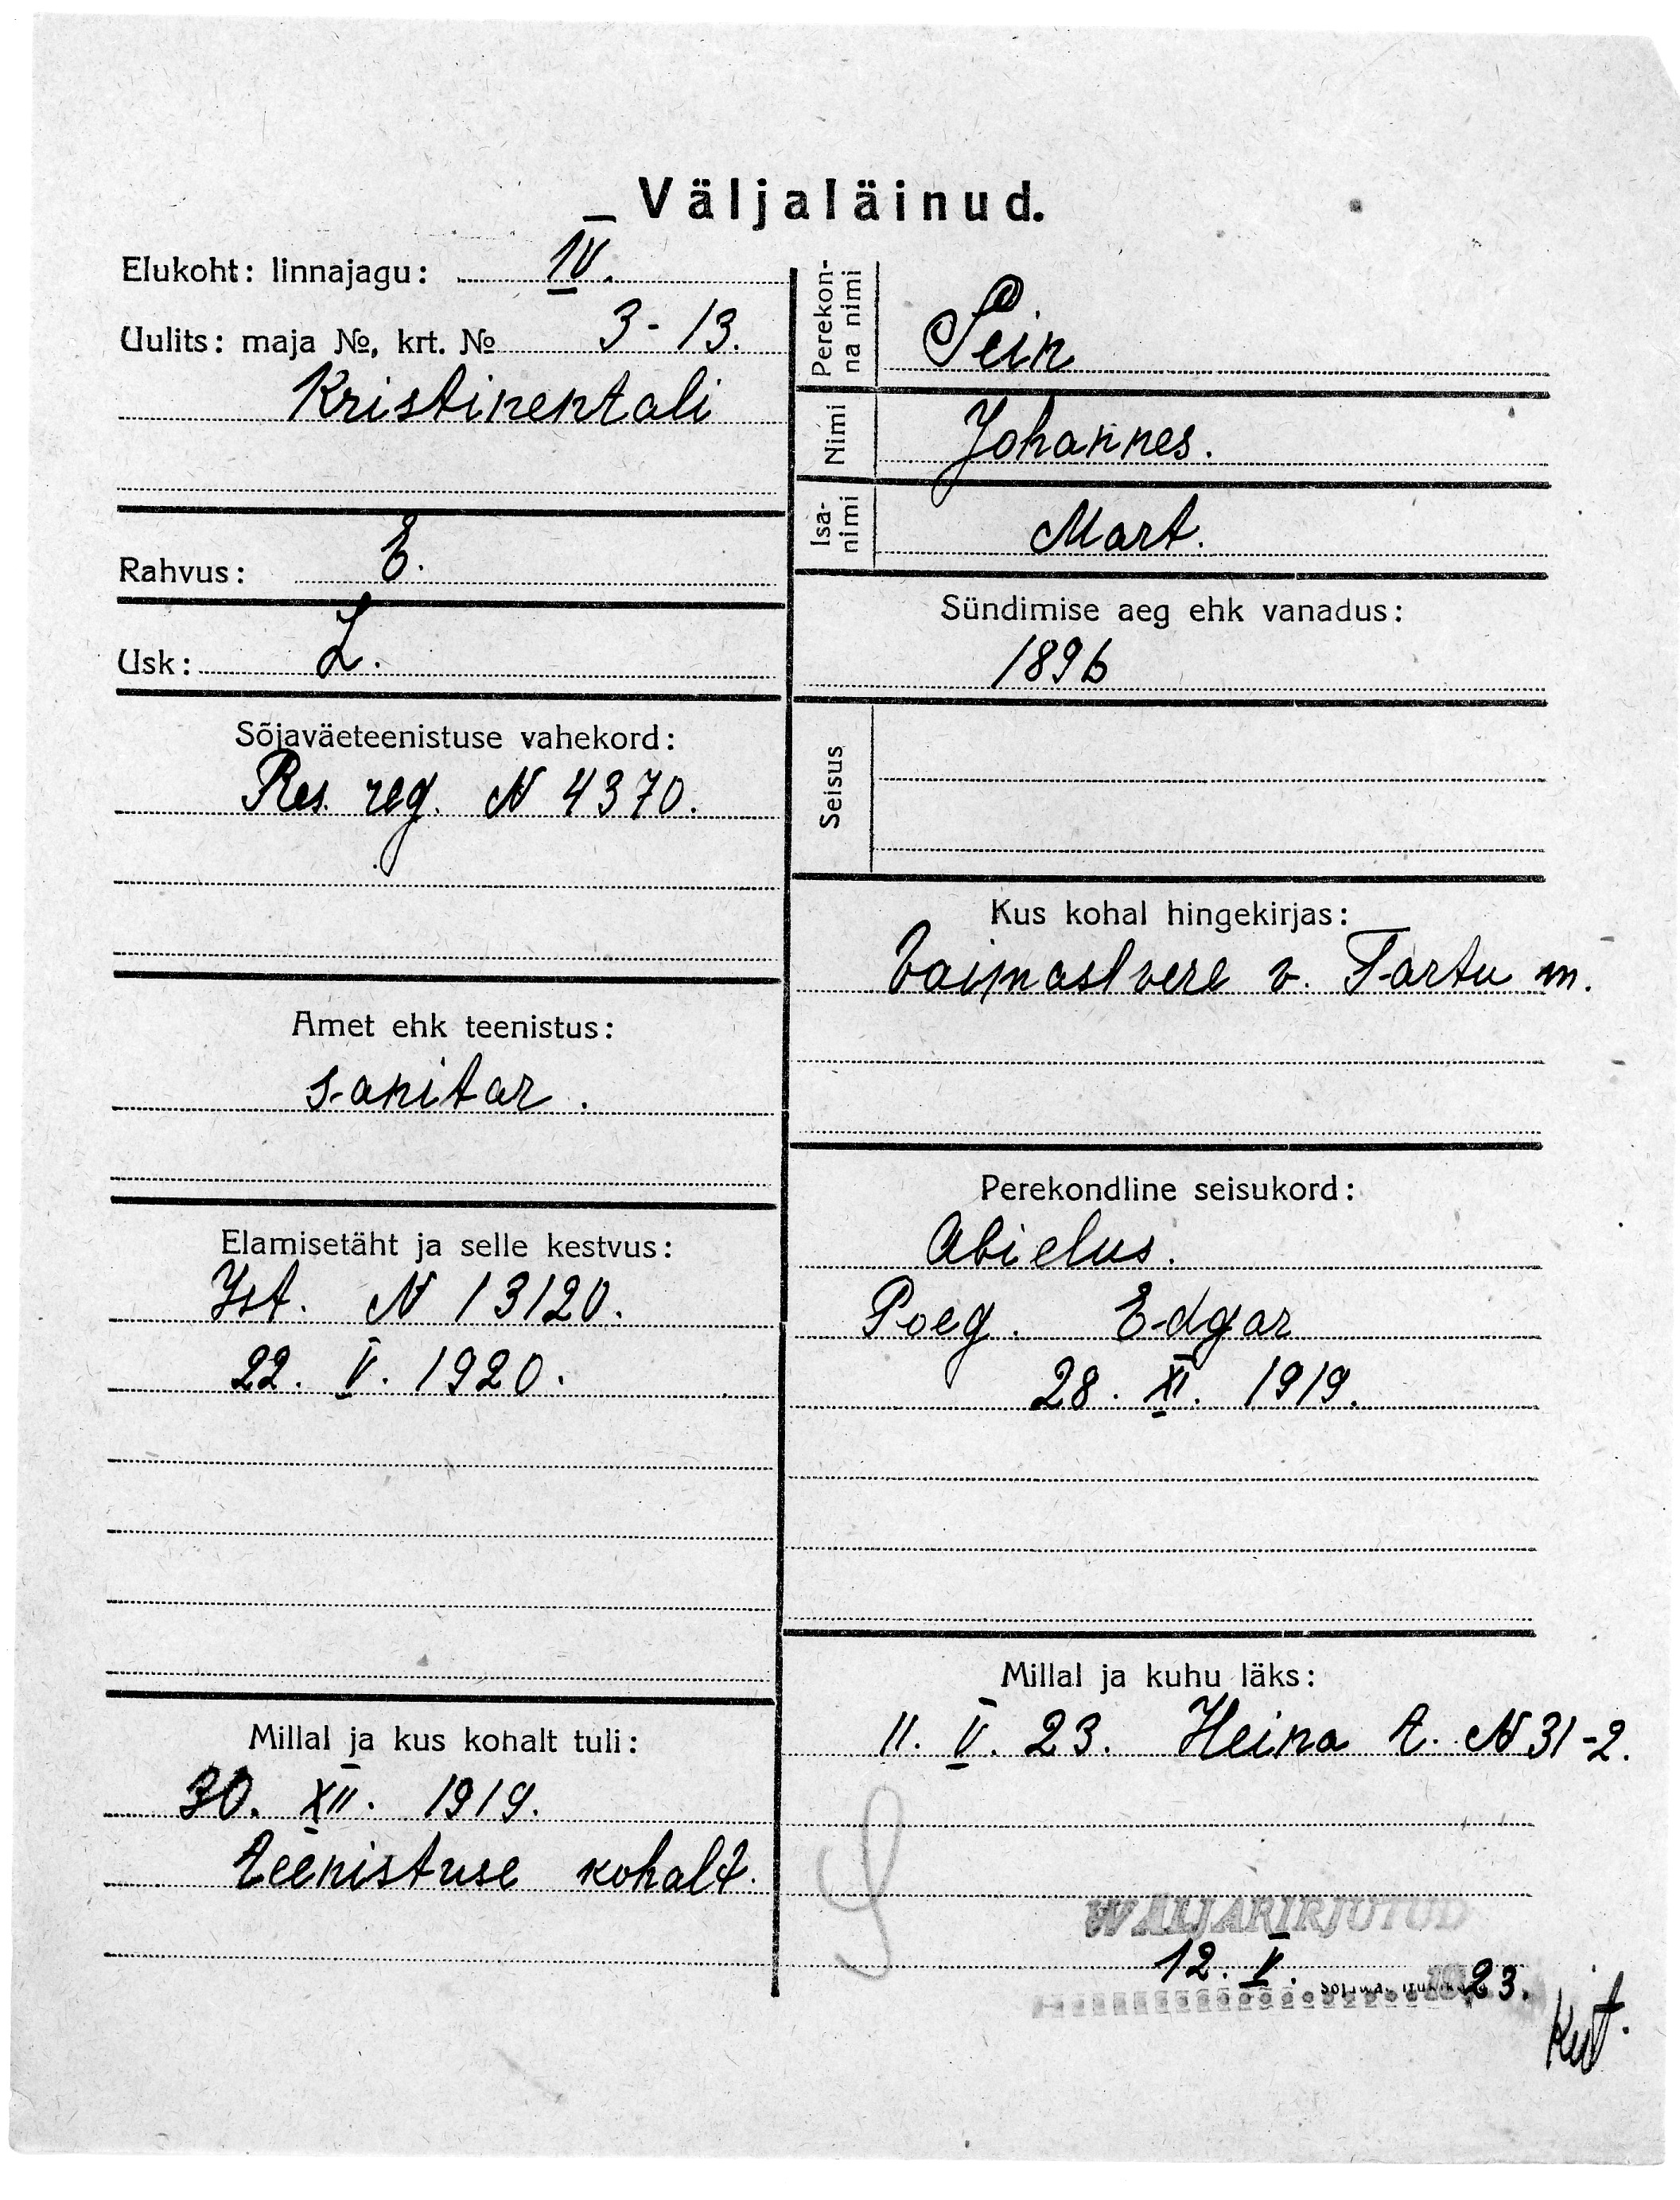 Väljaläinud.
Elukoht: linnajagu: IV.
Uulits: maja №, krt. № 3-13.
Kristinentali
Rahvus: E.
Usk: L.
Sõjaväeteenistuse vahekord:
Res. reg. N 4370.
Amet ehk teenistus:
sanitar.
Elamisetäht ja selle kestvus:
Ist. N 13120.
22. V. 1920.
Millal ja kus kohalt tuli:
30. XII. 1919.
teenistuse kohalt.
Perekon-
na nimi
Sein
Nimi Johannes.
Isa-
nimi
Mart.
Sündimise aeg ehk vanadus:
1896
Seisus
Kus kohal hingekirjas:
Vaimastvere v. Tartu m.
Perekondline seisukord:
Abielus.
Poeg. Edgar
28. XI. 1919.
Millal ja kuhu läks:
11. V. 23. Heina t. N 31-2.
WÄLJAKIRJUTUD
12. V. 1923.